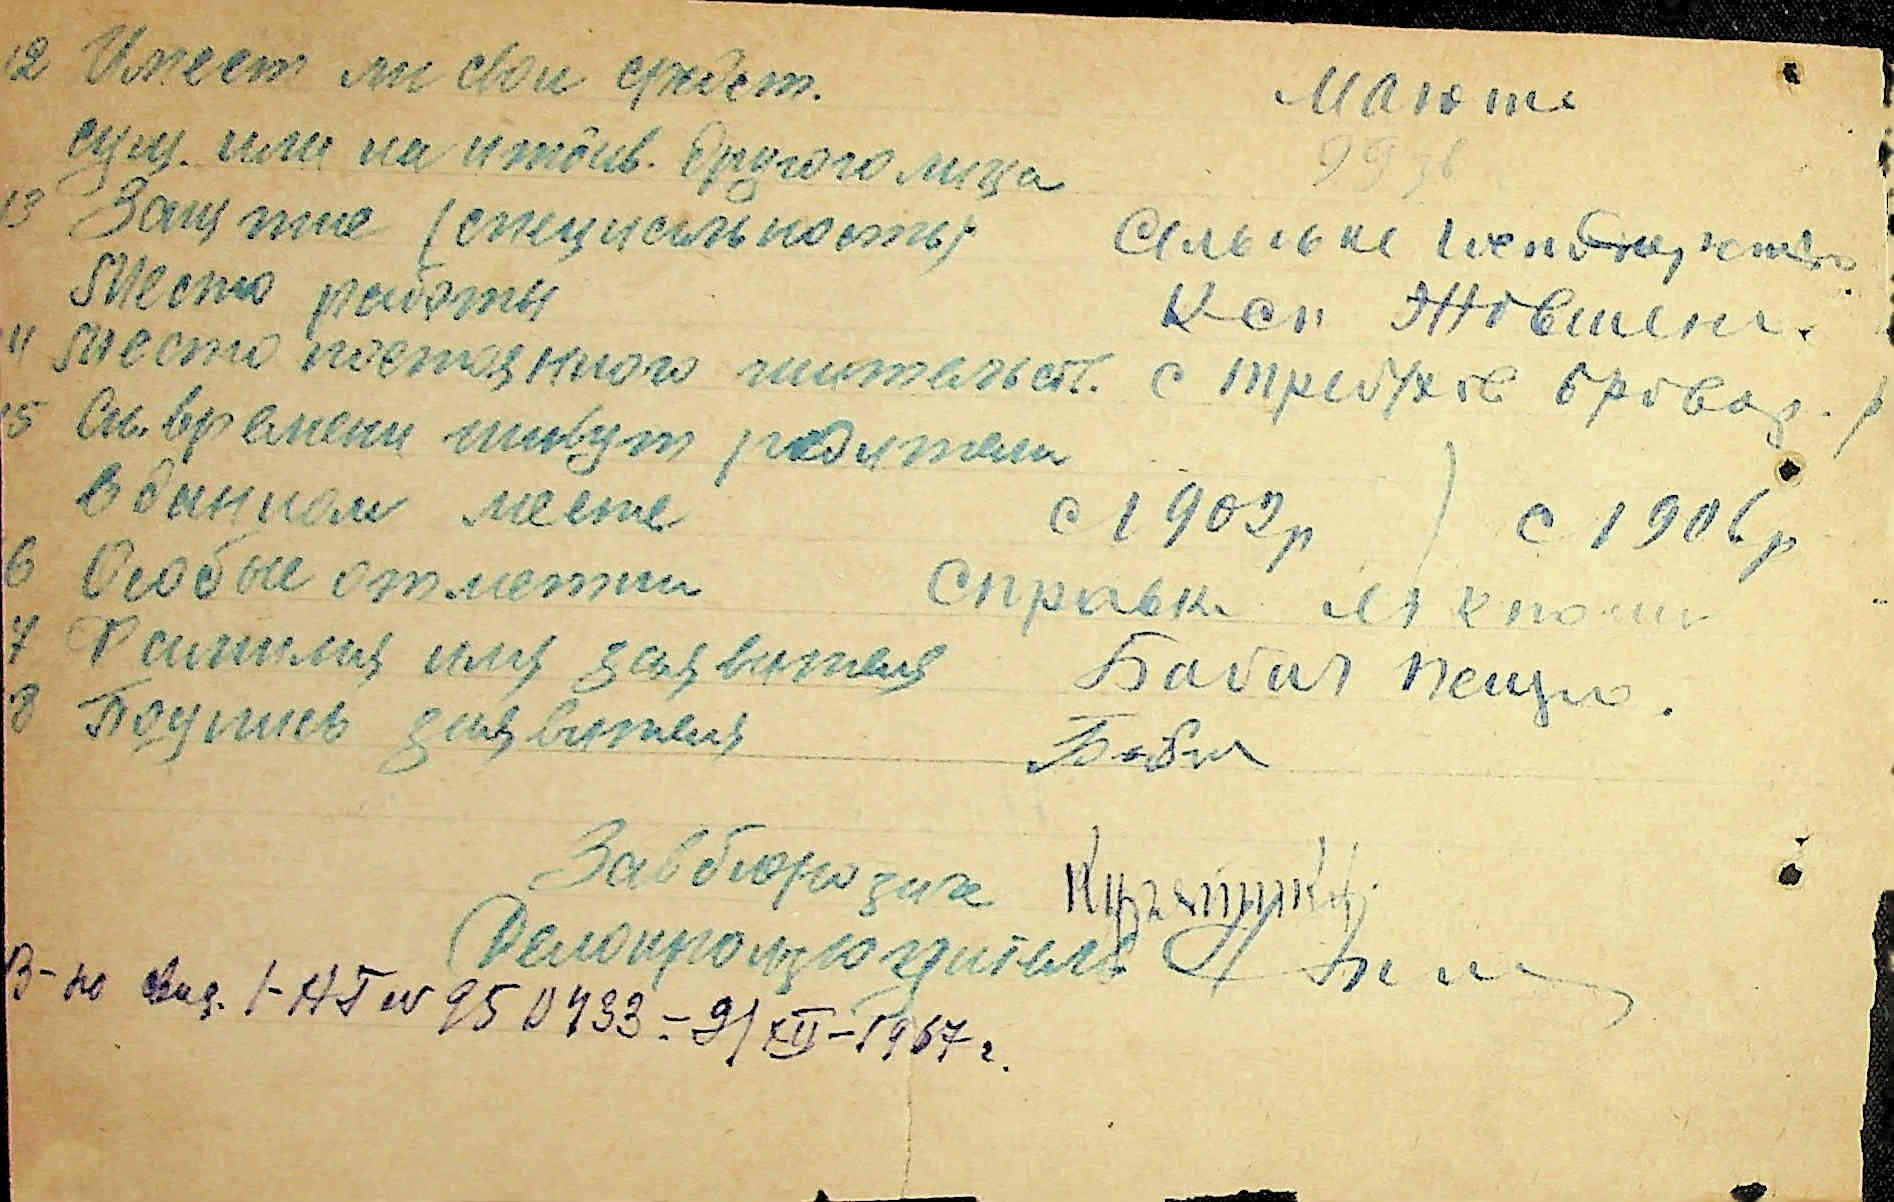 12 Имеет ли свои средст. Мають
сущ. или на иждив. другого лица
13 Занятие (специальность) Сільське
Место работы Ксп Жовтень.
14 Место постоянного жительст. с Требухів Бровар. р
15 Ск. времени живут родители
в данном месте с 1909р ) с 1906р
6 Особые отметки Справк.
7 Фамилия имя заявителя Бабич
8 Подпись заявителя Бабич
Зав бюро загс
Делопроизводитель
В-но свид. I-НГ № 950433 - 21/XII-1967 г.